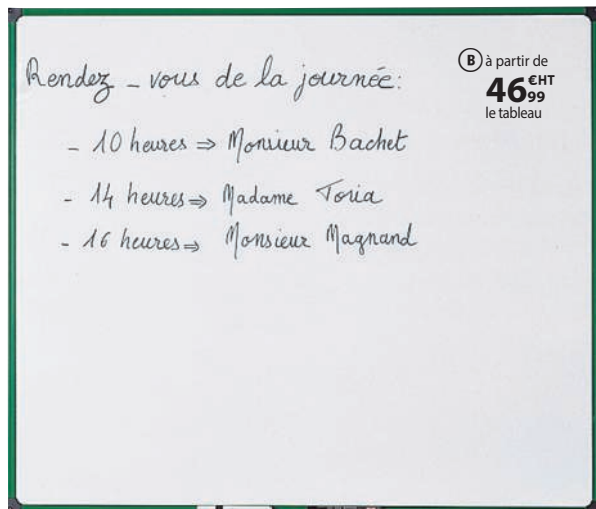 Rendez-vous de la journée:
- 10 heures ⇒ Monsieur Bachet
- 14 heures ⇒ Madame Toria
- 16 heures ⇒ Monsieur Magnand
B à partir de
46€HT99
le tableau